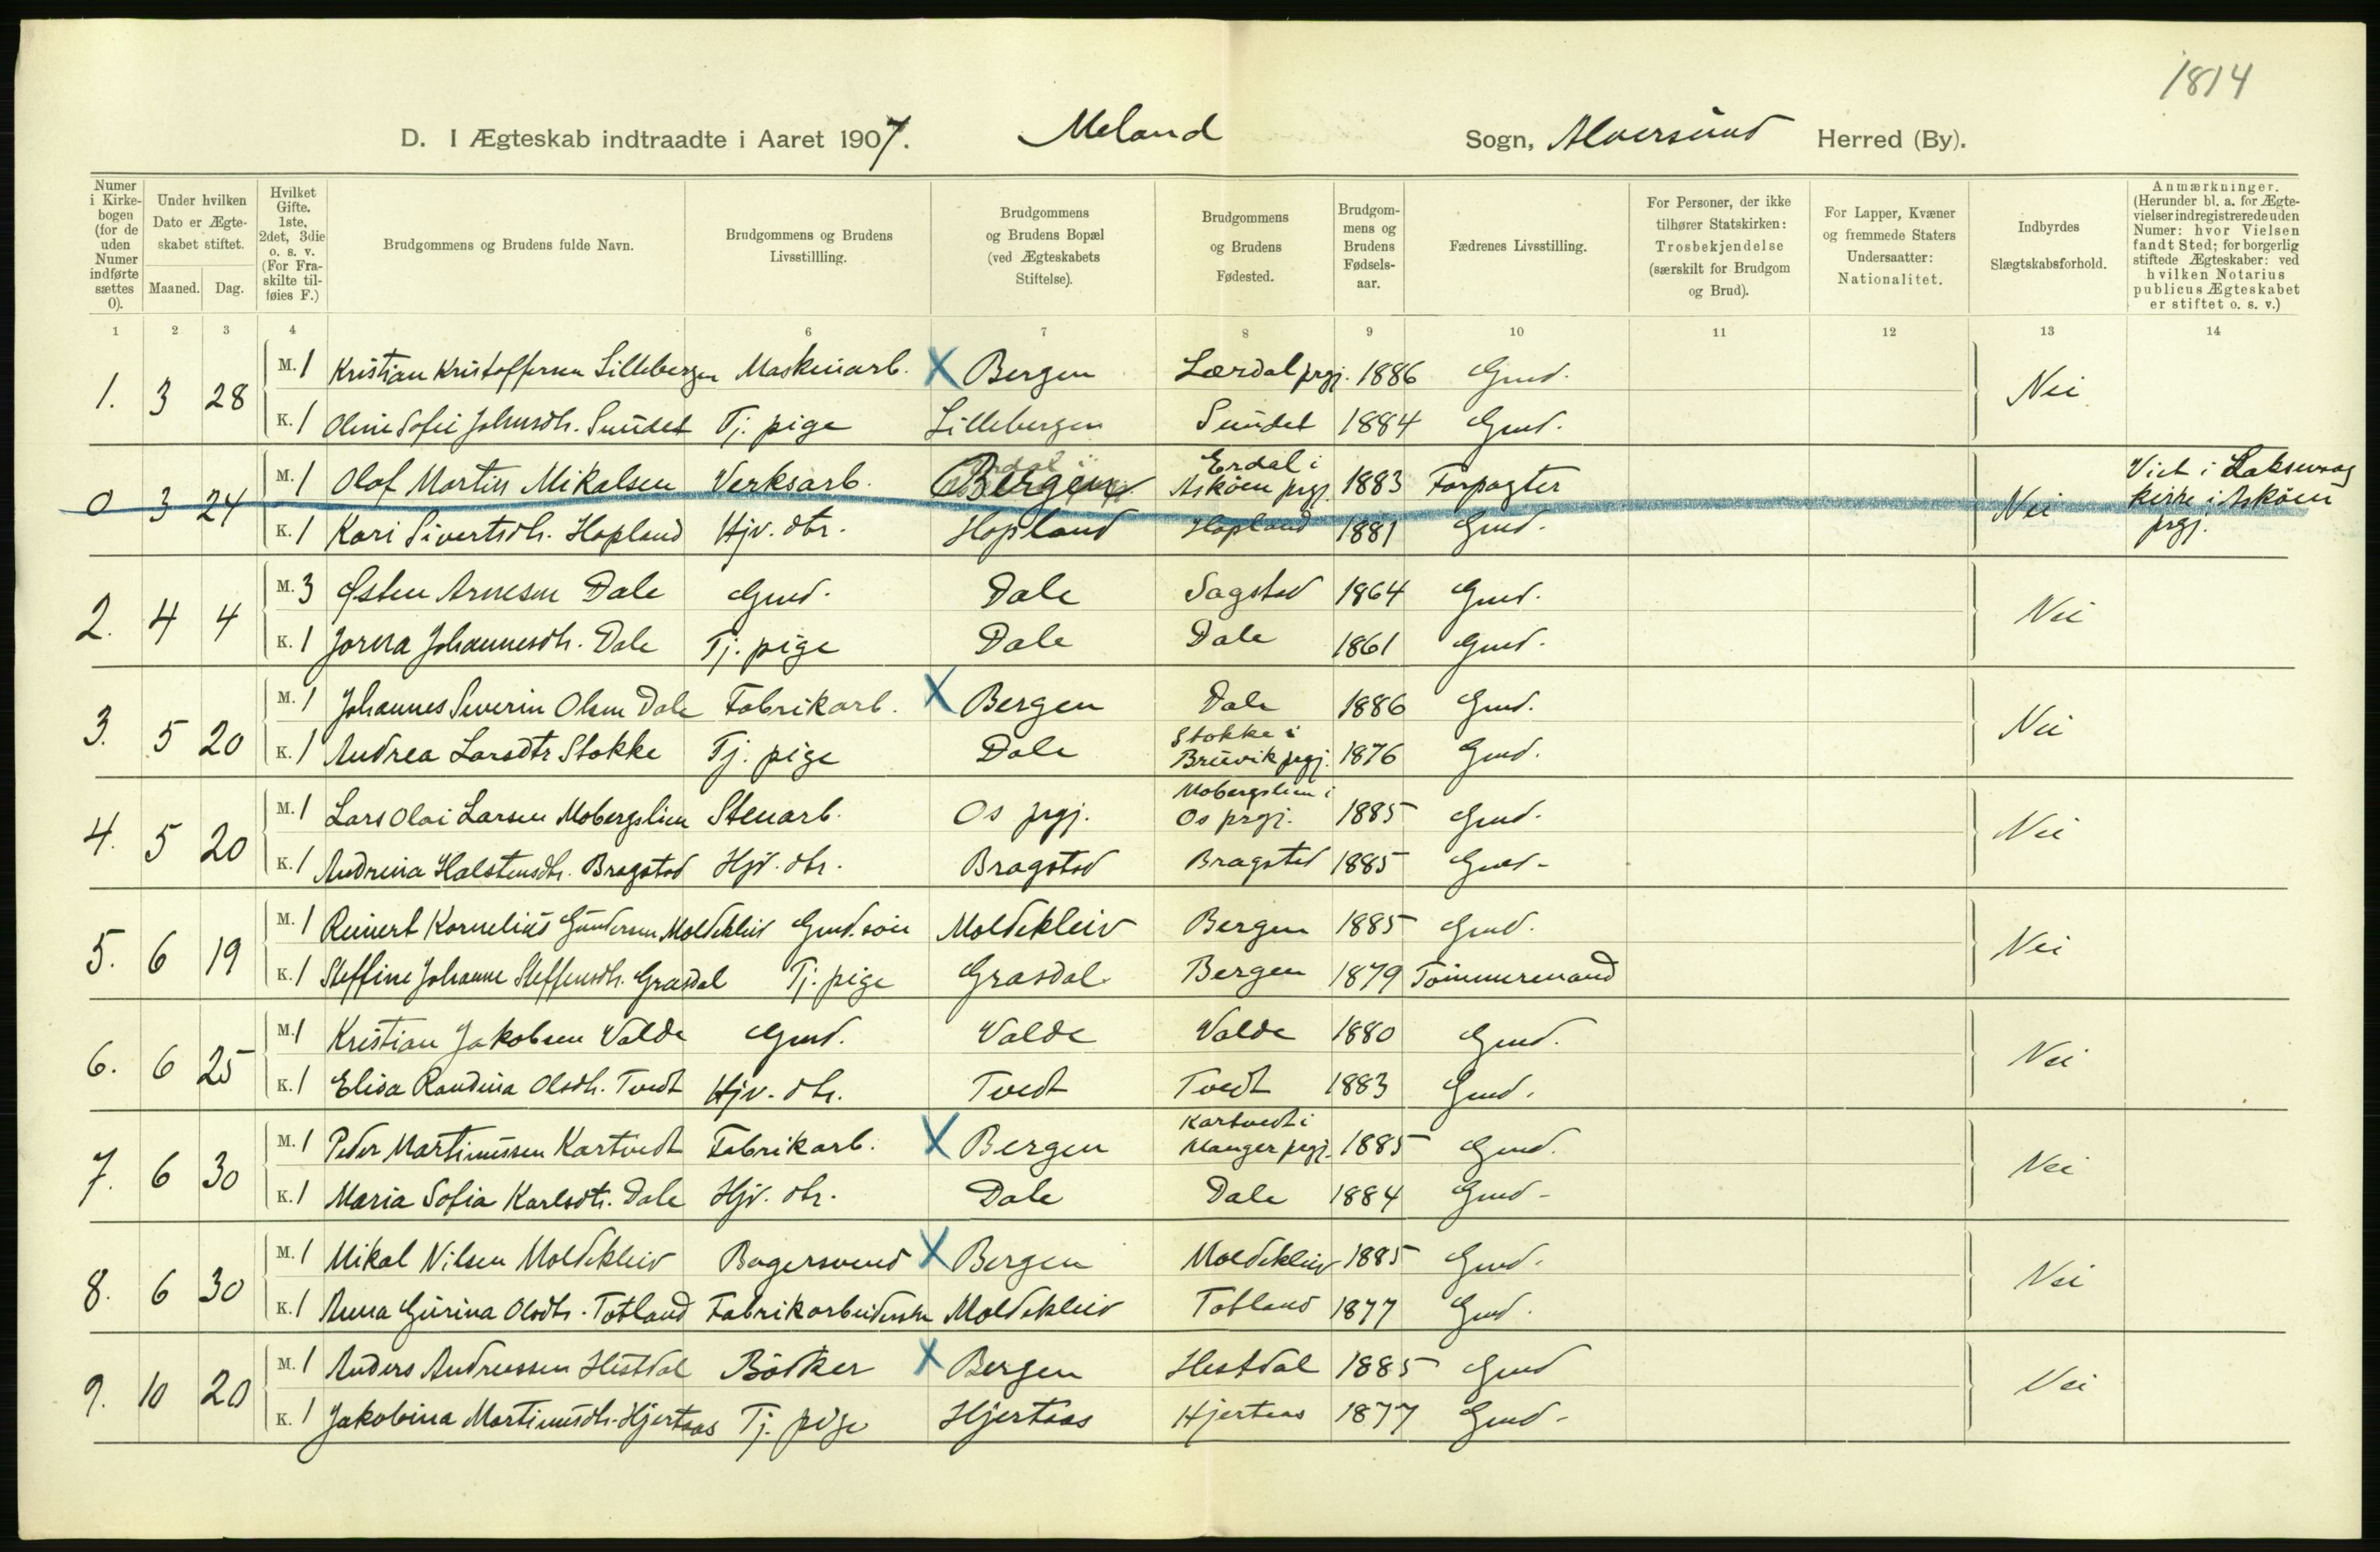 1814
D. I Ægteskab indtraadte i Aaret 1907. Meland Sogn, Alversund Herred (By).
Numer i Kirkebogen (for de uden Numer indførte sættes 0).
Under hvilken Dato er Ægteskabet stiftet.
Maaned. Dag.
Hvilket Gifte. 1ste, 2det, 3die o. s. v. (For Fraskilte tilføies F.)
Brudgommens og Brudens fulde Navn.
Brudgommens og Brudens Livsstillling.
Brudgommens og Brudens Bopæl (ved Ægteskabets Stiftelse).
Brudgommens og Brudens Fødested.
Brudgommens og Brudens Fødselsaar.
Fædrenes Livsstilling.
For Personer, der ikke tilhører Statskirken: Trosbekjendelse (særskilt for Brudgom og Brud).
For Lapper, Kvæner og fremmede Staters Undersaatter: Nationalitet.
Indbyrdes Slægtskabsforhold.
Anmærkninger. (Herunder bl. a. for Ægtevielser indregistrerede uden Numer: hvor Vielsen fandt Sted; for borgerlig stiftede Ægteskaber: ved hvilken Notarius publicus Ægteskabet er stiftet o. s. v.)
1 2 3 4 6 7 8 9 10 11 12 13 14
1. 3 28 M. 1 Kristian Kristoffersen Lillebergen Maskinarb. X Bergen Lærdal prgj. 1886 Gmd. Nei
K. 1 Oline Sofie Johnsdtr. Sundet Tj. pige Lillebergen Sundet 1884 Gmd.
0 3 24 M. 1 Olaf Martin Mikalsen Verksarb. Bergen Erdal i Askøen prgj. 1883 Forpagter Nei Viet i Laksevaag kirke i Askøen prgj.
K. 1 Kari Sivertsdtr. Hopland Hjv. dtr. Hopland Hopland 1881 Gmd.
2. 4 4 M. 3 Østen Arnesen Dale Gmd. Dale Sagstad 1864 Gmd. Nei
K. 1 Jorna Johannesdtr. Dale Tj. pige Dale Dale 1861 Gmd.
3. 5 20 M. 1 Johannes Severin Olsen Dale Fabrikarb. X Bergen Dale 1886 Gmd. Nei
K. 1 Andrea Larsdtr Stokke Tj. pige Dale Stokke i Bruvik prgj. 1876 Gmd.
4. 5 20 M. 1 Lars Olai Larsen Mobergslien Stenarb. Os prgj. Mobergslien i Os prgj. 1885 Gmd. Nei
K. 1 Andrina Halstensdtr. Bragstad Hjv. dtr. Bragstad Bragstad 1885 Gmd.
5. 6 19 M. 1 Reinert Kornelius Gundersen Moldekleiv Gmd. søn Moldekleiv Bergen 1885 Gmd. Nei
K. 1 Steffine Johanne Steffensdtr. Grasdal Tj. pige Grasdal Bergen 1879 Tømmermand
6. 6 25 M. 1 Kristian Jakobsen Valde Gmd. Valde Valde 1880 Gmd. Nei
K. 1 Elisa Randina Olsdtr. Tvedt Hjv. dtr. Tvedt Tvedt 1883 Gmd.
7. 6 30 M. 1 Peder Martinussen Kartvedt Fabrikarb. X Bergen Kartvedt i Manger prgj. 1885 Gmd. Nei
K. 1 Maria Sofia Karlsdtr. Dale Hjv. dtr. Dale Dale 1884 Gmd.
8. 6 30 M. 1 Mikal Nilsen Moldekleiv Bagersvend X Bergen Moldekleiv 1885 Gmd. Nei
K. 1 Anna Gurina Olsdtr. Totland Fabrikarbeiderske Moldekleiv Totland 1877 Gmd.
9. 10 20 M. 1 Anders Andreassen Hestdal Bødker X Bergen Hestdal 1885 Gmd Nei
K. 1 Jakobina Martinusdtr. Hjertaas Tj. pige Hjertaas Hjertaas 1877 Gmd.